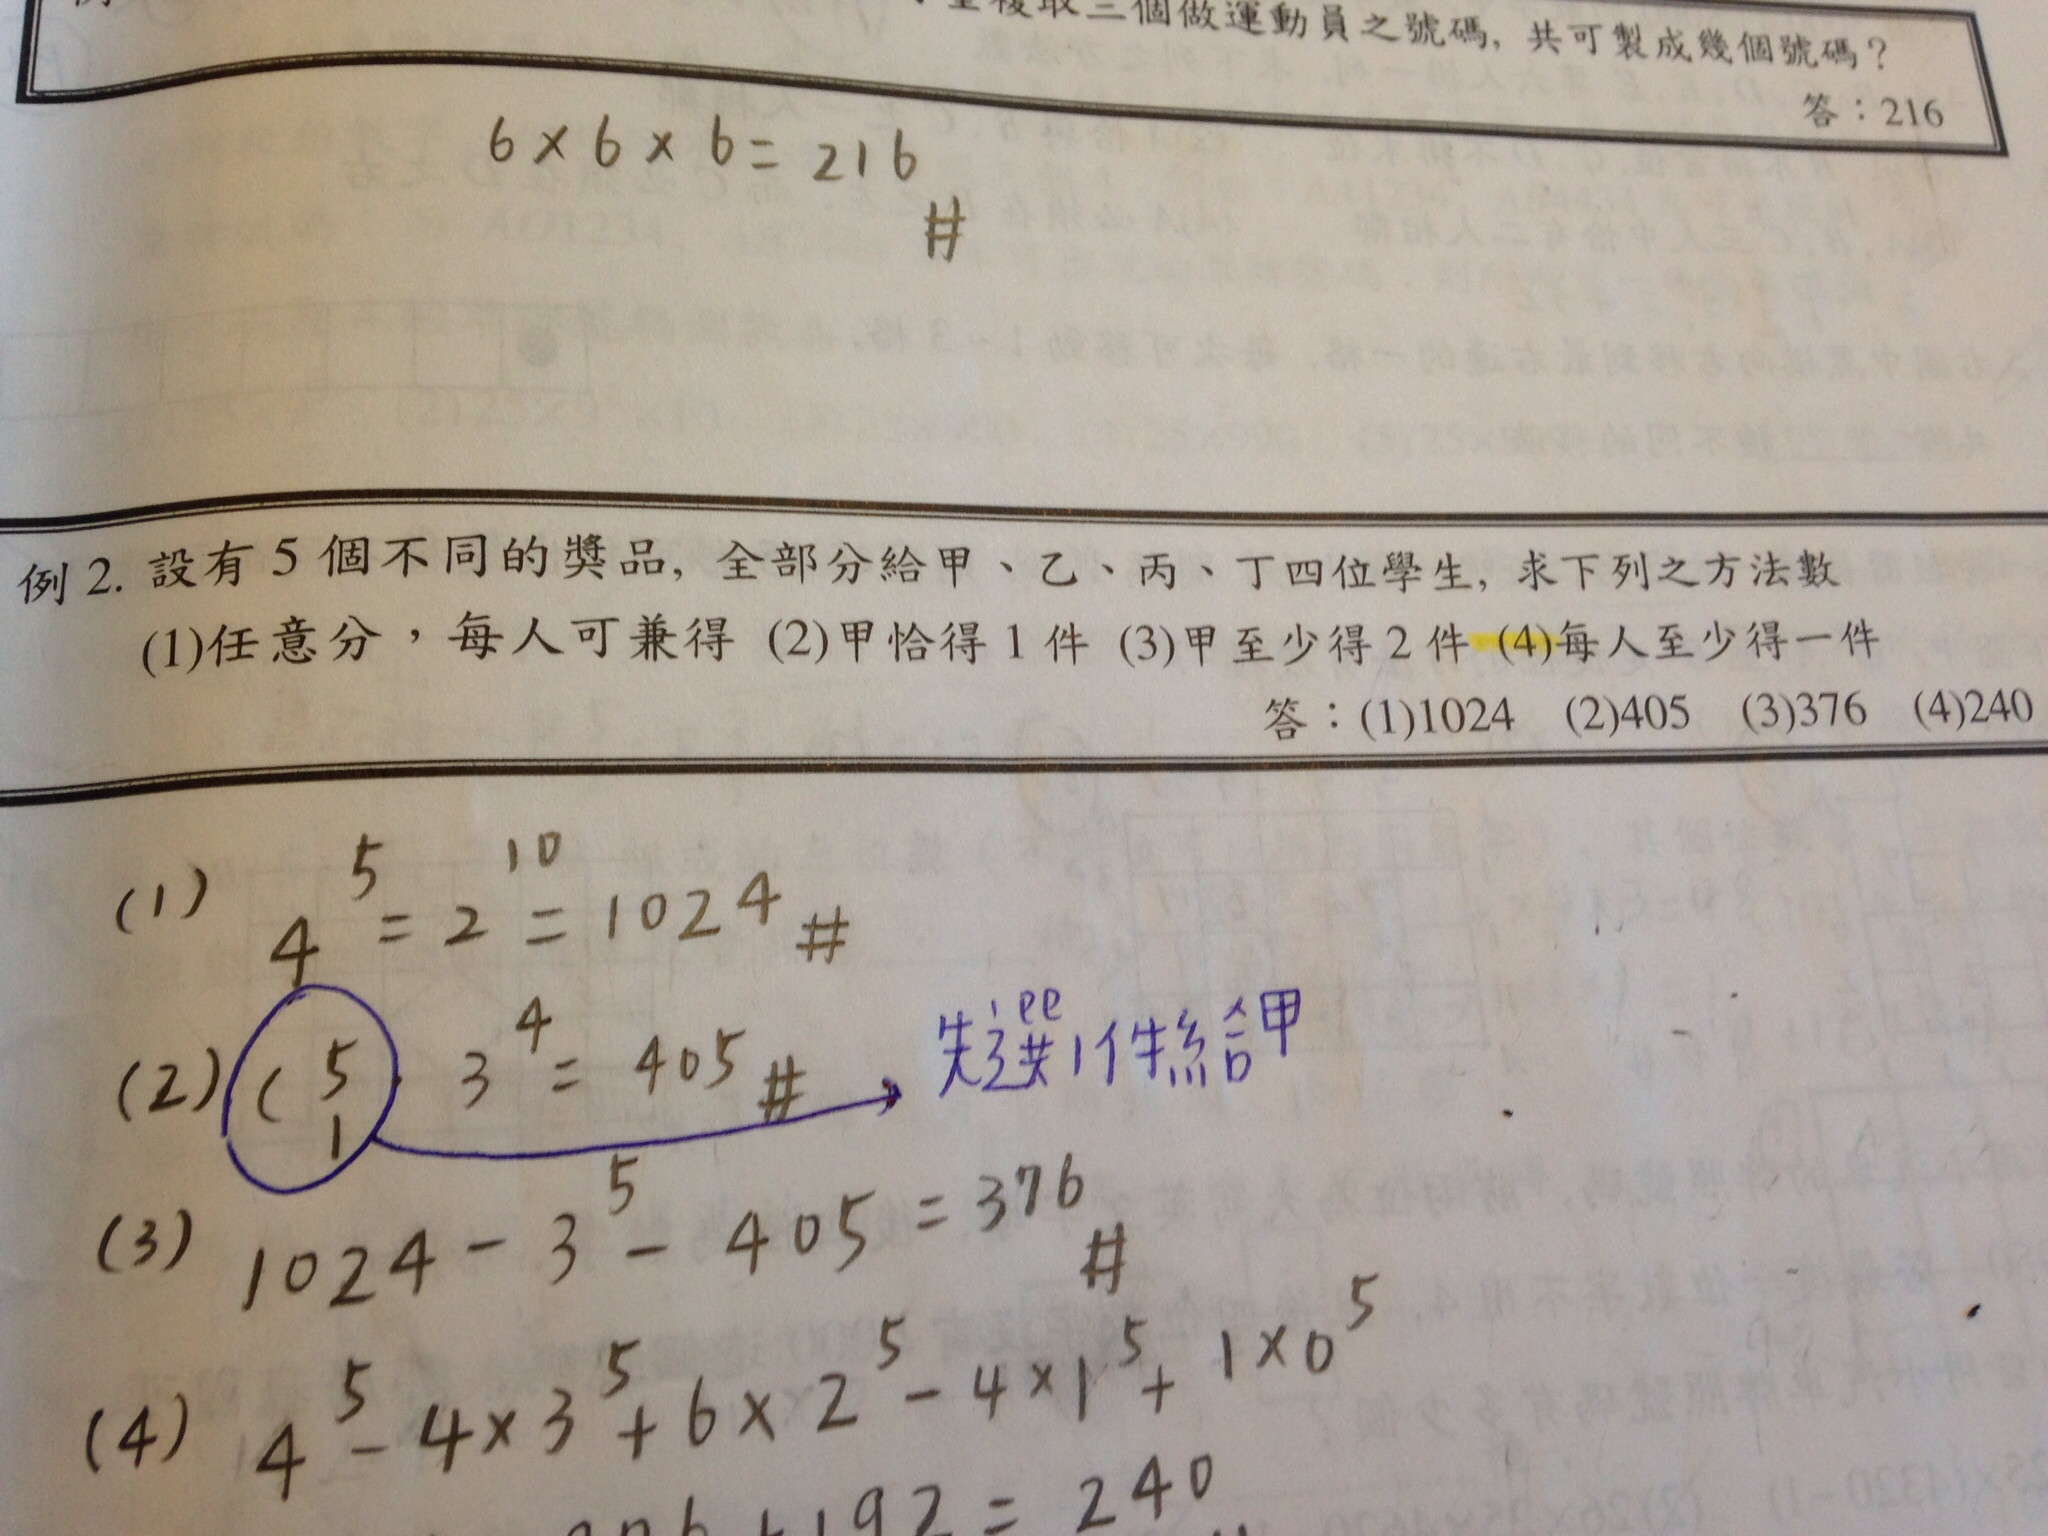 複取三個做運動員之號碼, 共可製成幾個號碼？
答：216
6 × 6 × 6 = 216 #
例 2. 設有 5 個不同的獎品, 全部分給甲、乙、丙、丁四位學生, 求下列之方法數
(1)任意分，每人可兼得 (2)甲恰得 1 件 (3)甲至少得 2 件 (4)每人至少得一件
答：(1)1024 (2)405 (3)376 (4)240
(1) 4^5 = 2^10 = 1024 #
(2) (5 1 · 3^4 = 405 # → 先選1件給甲
(3) 1024 - 3^5 - 405 = 376 #
(4) 4^5 - 4×3^5 + 6×2^5 - 4×1^5 + 1×0^5
+192 = 240